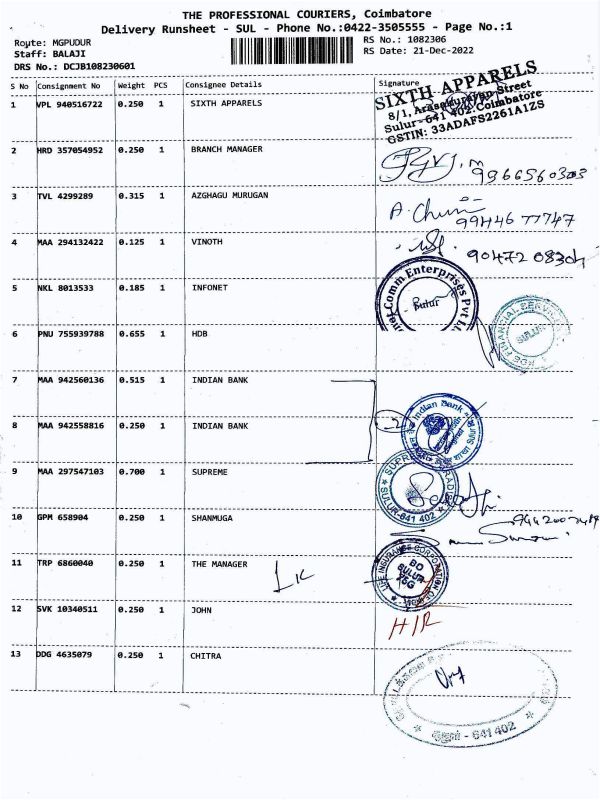 THE PROFESSIONAL COURIERS, Coimbatore
Delivery Runsheet - SUL - Phone No.:0422-3505555 - Page No.:1
Route: MGPUDUR
Staff: BALAJI
DRS No.: DCJB108230601
RS No.: 1082306
RS Date: 21-Dec-2022
S No Consignment No Weight PCS Consignee Details Signature
1 VPL 940516722 0.250 1 SIXTH APPARELS
SIXTH APPARELS
8/1, Arasamaravan Street
Sulur - 641 402. Coimbatore
GSTIN: 33ADAFS2261A1ZS
2 HRD 357054952 0.250 1 BRANCH MANAGER
9966560303
3 TVL 4299289 0.315 1 AZGHAGU MURUGAN
9944677747
4 MAA 294132422 0.125 1 VINOTH
5 NKL 8013533 0.185 1 INFONET
Comm Enterprises Pvt
Sulur
6 PNU 755939788 0.655 1 HDB
FINANCIAL SERVICES
SULUR
7 MAA 942560136 0.515 1 INDIAN BANK
8 MAA 942558816 0.250 1 INDIAN BANK
Indian Bank
Sulur
9 MAA 297547103 0.700 1 SUPREME
SULUR-641 402
10 GPM 658904 0.250 1 SHANMUGA
11 TRP 6860040 0.250 1 THE MANAGER
LIC
LIFE INSURANCE CORPORATION
BO
SULUR
76G
12 SVK 10340511 0.250 1 JOHN
H/R
13 DDG 4635079 0.250 1 CHITRA
- 641 402